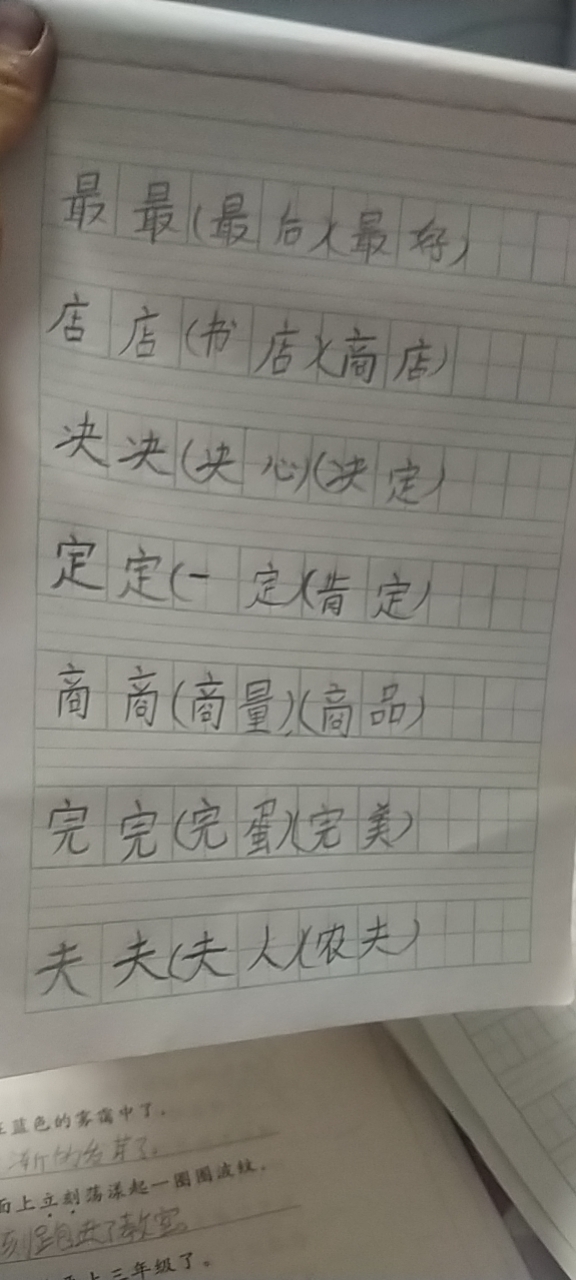 最最(最后)(最好)
店店(书店)(商店)
决决(决心)(决定)
定定(一定)(肯定)
商商(商量)(商品)
完完(完蛋)(完美)
夫夫(夫人)(农夫)
蓝色的雾霭中了。
渐的
面上立刻荡漾起一圈圈波纹。
刻跑进了教室。
上三年级了。